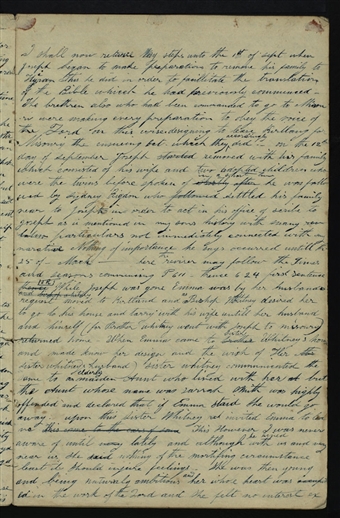 I shall now retrace my steps unto the 1st of sept when
Joseph began to make preparations to remove his family to
Hyrum this he did in order to facilitate the translation
of the Bible which he had previously commenced—
the brethren also who had been commanded to go to
were making every preparation to obey the voice of
the Lord in this were designing to leave Kirtland for
Missouri the ensuing which they did on the 12th
day of september Joseph started removed with his family
which consisted of his wife and two adopted children who
were the twins before spoken of he was
by sydney Rigdon who followed settled his family
near to Joseph in order to act in his office of scribe to
Joseph as is mentioned in my sons history with many
particulars not immediately connected with
Nothing of importance he says occurred until the
25 of March — here may follow the Times
and seasons commencing P 611 - there 624 first sentence
While Joseph was gone Emma was by her husbands
request moved to Kirtland and Bishop Whitney desired her
to go to his house and tarry with his wife until her husband
and himself (for Brother Whitney went with Joseph to missouri)
returned home. When Emma came to Brother Whitneys house
and made known her design and the wish of Her
sister whitneys husband) Sister whitney communicated the
same to Aunt who lived with her at
Aunt whose name was sarrah Smith was highly
offended and declared that if Emma staid she would go
away upon this Sister Whitney invited Emma to
not This However I was never
aware of until lately and although with us and very
near us She said nothing of the mortifying circumstance
least it should injure feelings. She was then young
and being naturally ambitious and her whole heart was
in the work of the Lord and she felt no interest